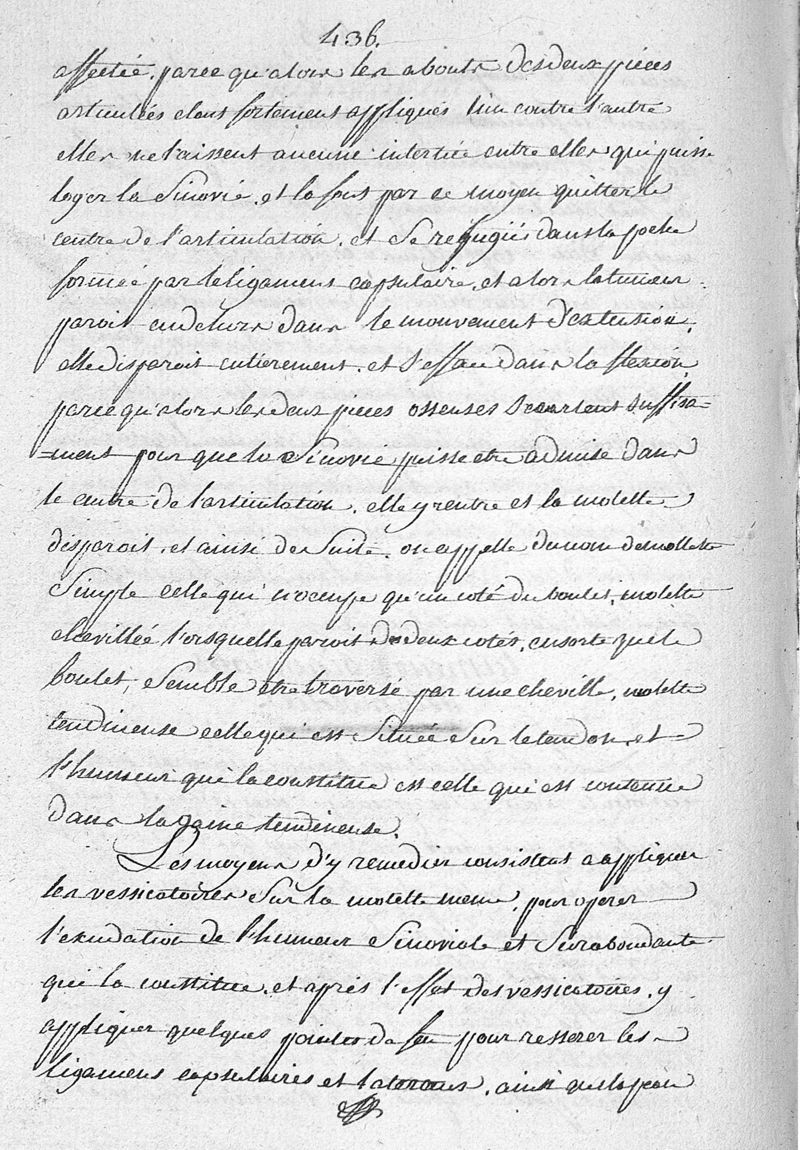 436.
affectée. parce qu'alors les abouts des deux pièces
articulées etant fortement appliqués l'un contre l'autre
elles ne laissent aucune intertice entre elles qui puisse
loger la Sinovie, et la font par ce moyen quitter le
centre de l'articulation, et Se refugiés dans la poche
formée par le ligament capsulaire, et alors latumeur
paroit endehors dans le mouvement D'extension,
elle disparoit entierement, et S'efface dans la flexion,
parce qu'alors les deux pieces osseuses S'ecartent Suffisa=
=ment pour que la Sinovie puisse etre admise dans
le centre de l'articulation, elle y rentre et la molette
disparoit, et ainsi de Suite, on appelle du nom demollette
Simple celle qui n'occupe qu'un coté du boulet, molette
chevillée l'orsquelle paroit de deux cotés, ensorte que le
boulet, Semble être traversé par une cheville, molette
tendineuse celle qui est Située Sur le tendon, et
l'humeur qui la constitue est celle qui est contenue
dans la gaine tendineuse.
Les moyens d'y remedier consistent a appliquer
les vessicatoires Sur la molette meme, pour operer
l'exudation de l'humeur Sinoviale et Surabondante
qui la constitue, et après l'effet des vessicatoires, y
appliquer quelques pointes de feu pour resserer les
ligamens capsulaires et lateraux, ainsi que la peau